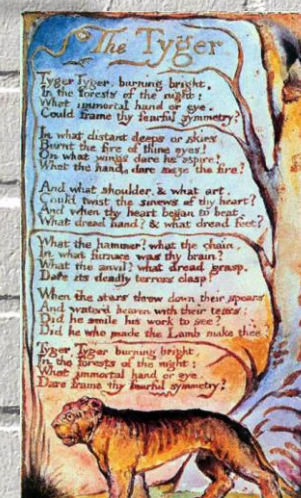 The Tyger
Tyger Tyger. burning bright,
In the forests of the night:
What immortal hand or eye.
Could frame thy fearful symmetry?
In what distant deeps or skies
Burnt the fire of thine eyes!
On what wings dare he aspire!
What the hand, dare seize the fire?
And what shoulder, & what art,
Could twist the sinews of thy heart?
And when thy heart began to beat,
What dread hand? & what dread feet?
What the hammer? what the chain,
In what furnace was thy brain?
What the anvil? what dread grasp,
Dare its deadly terrors clasp!
When the stars threw down their spears
And water'd heaven with their tears:
Did he smile his work to see?
Did he who made the Lamb make thee
Tyger, Tyger burning bright,
In the forests of the night:
What immortal hand or eye,
Dare frame thy fearful symmetry?